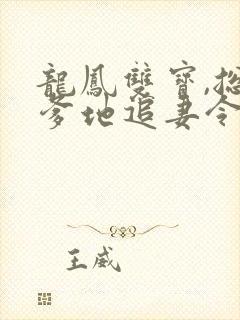 龍鳳雙寶,總
爹地追妻令
王威